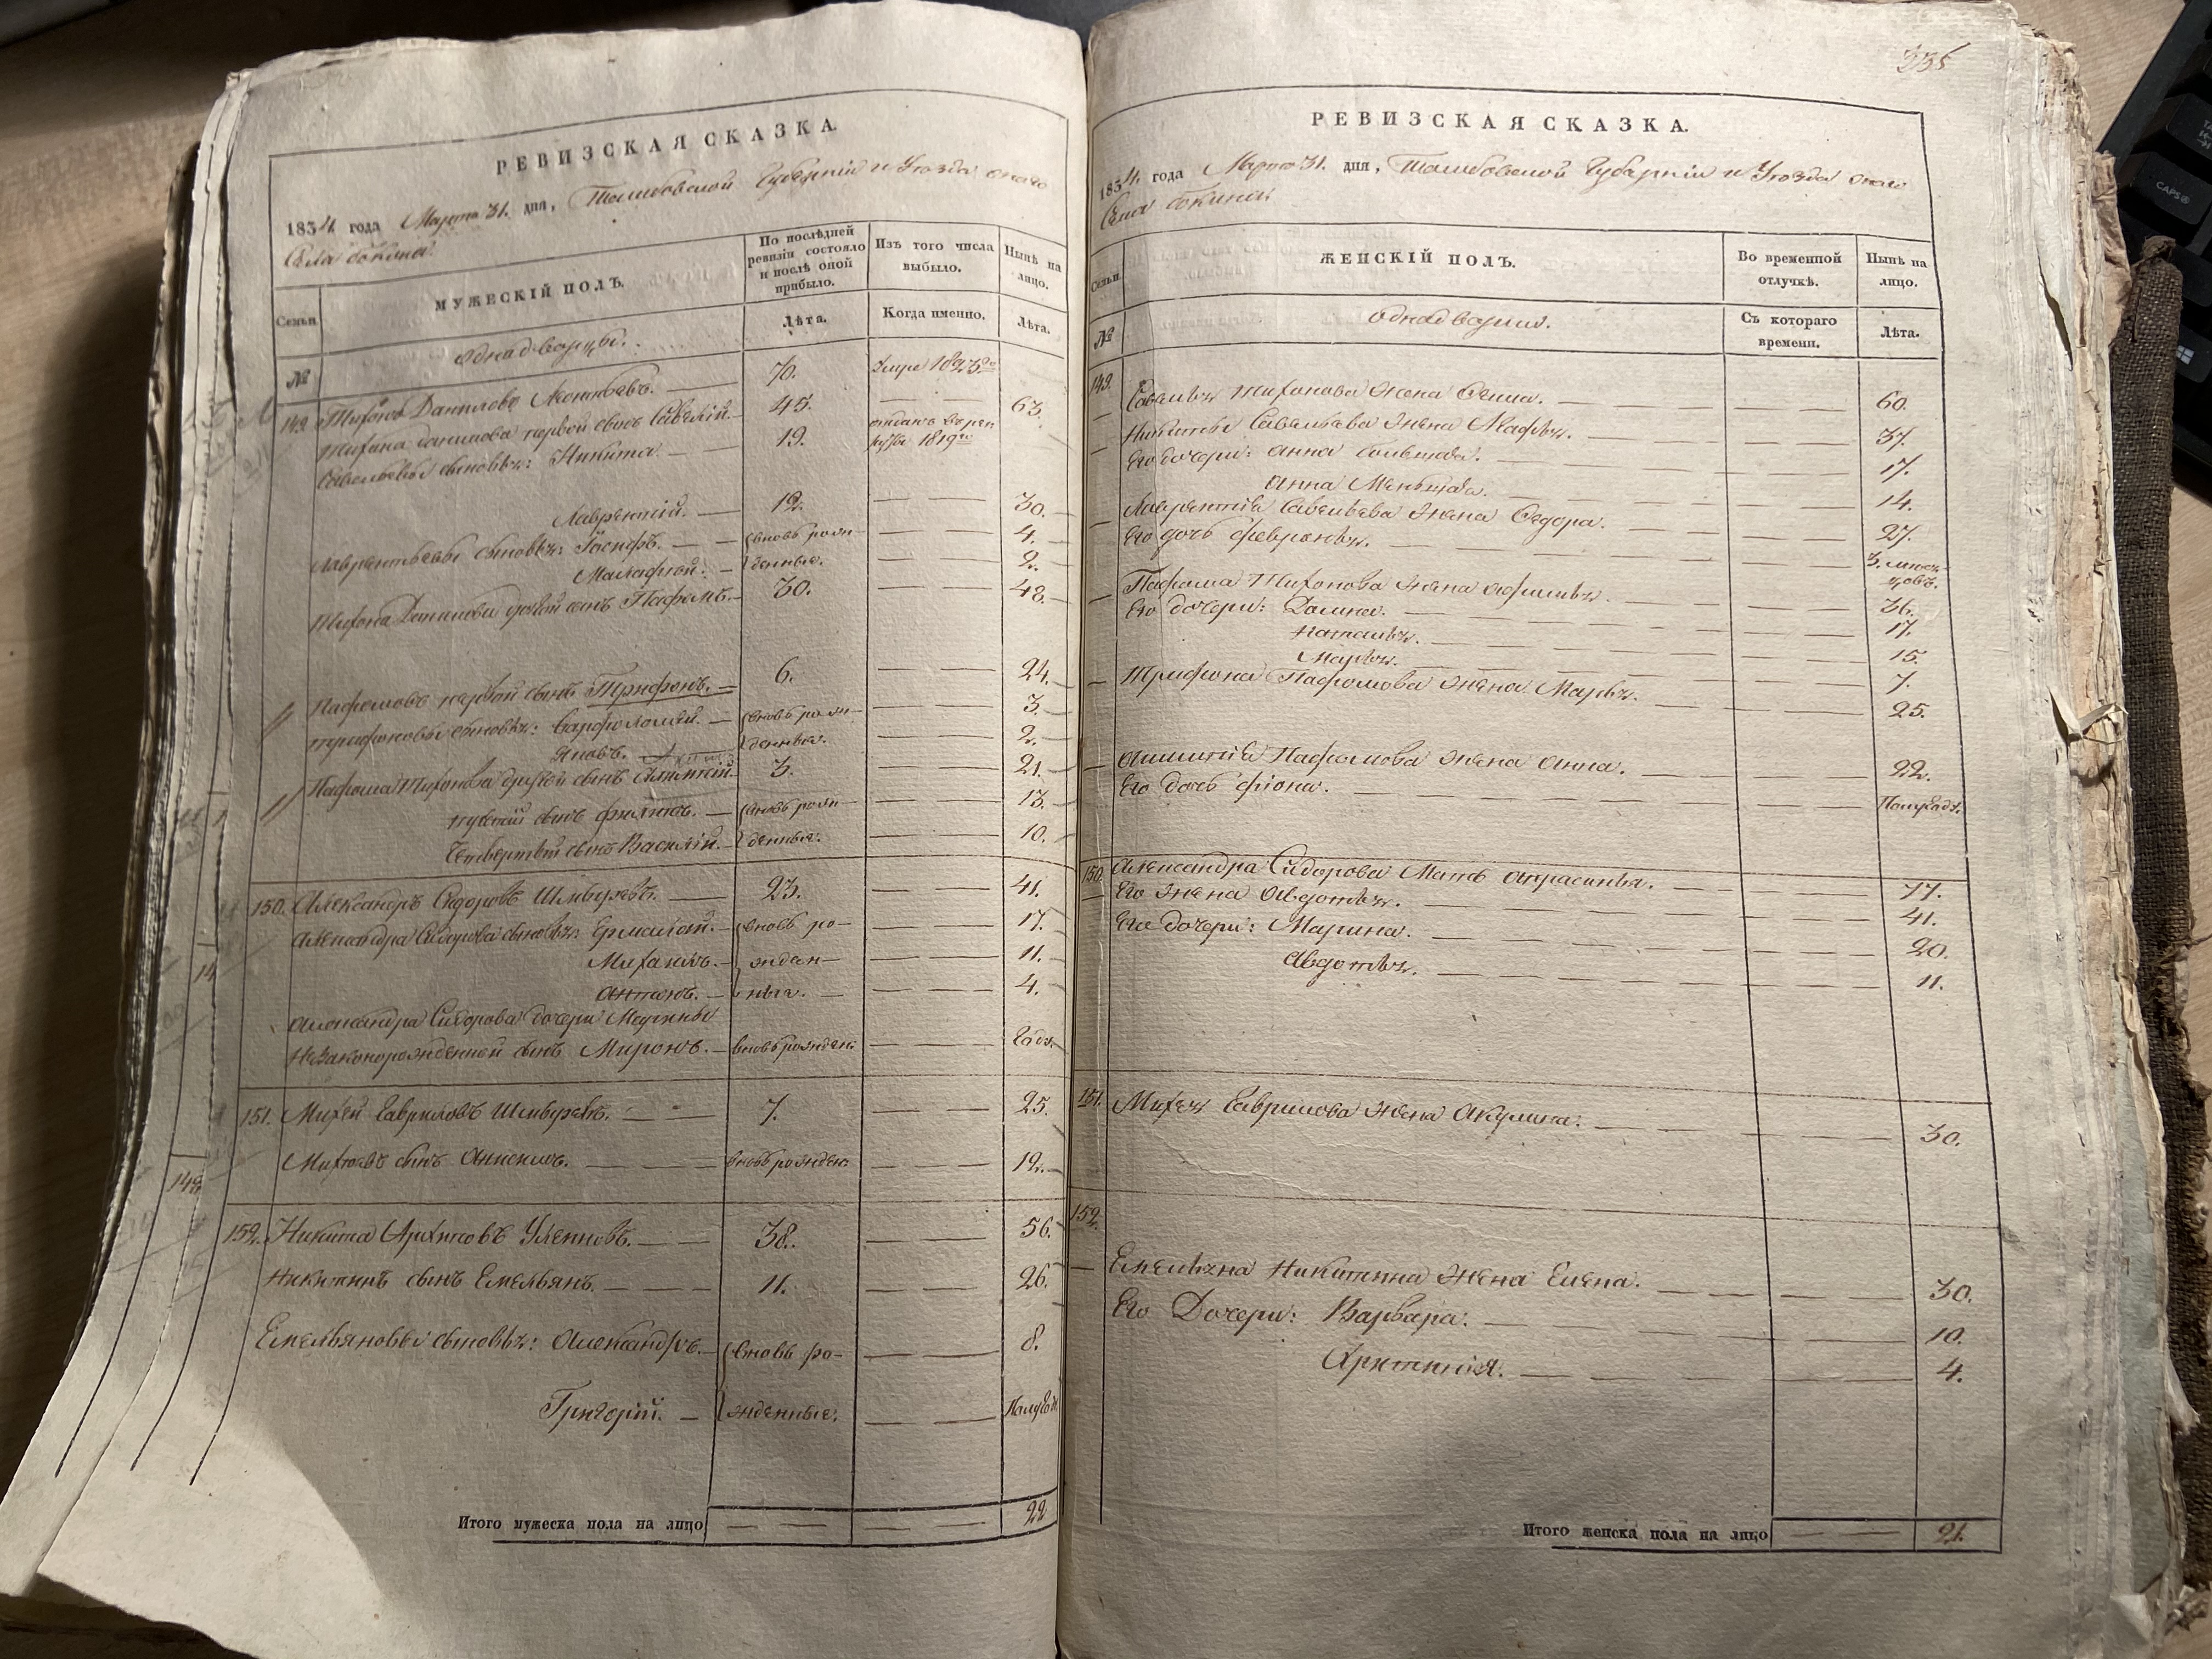 РЕВИЗСКАЯ СКАЗКА.
1834. года Марта 31. дня, Тамбовской Губерніи и Уезда онаго
Села бокина
Семьи
МУЖЕСКІЙ ПОЛЪ.
По послѣдней ревизіи состояло и послѣ оной прибыло.
Изъ того числа выбыло.
Нынѣ на лицо.
№
однадворцы.
Лѣта.
Когда именно.
Лѣта.
149. Тихонъ Даниловъ Леонтьевъ. — 70. умре 1825го
Тихона данилова первой сынъ Савелій. — 45. — — 63.
Савельевы сыновья: Никита — 19. отданъ в рекруты 1819го
Лаврентій. — 12. — — 30.
Лаврентьевы сыновья: Іосифъ. — вновь рож- — — 4.
Малафей. — денные. — — 2.
Тихона Данилова другой сынъ Пафомъ. — 30. — — 48.
Пафомовъ первой сынъ Трифонъ. — 6. — — 24.
трифоновы сыновья: Варфоломей. — вновь рож- — — 3.
Яковъ. — денные. — — 2.
Пафома Тихонова другой сынъ — 3. — — 21.
третій сынъ филипъ. — вновь рож- — — 13.
Четвертый сынъ Василій. — денные. — — 10.
150. Александръ Сидоровъ Шибуревъ. — 23. — — 41.
Александра Сидорова сыновья: Ермолай. — вновь ро- — — 17.
Михаилъ. — ждан- — — 11.
Антонъ. — ныя. — — 4.
Александра Сидорова дочери Марины
Незаконорожденной сынъ Миронъ. — вновь рожден: — — Годъ.
151. Михей Гавриловъ Шибуревъ. — 7. — — 25.
Михеевъ сынъ — вновь рожден: — — 12.
152. Никита Архиповъ — 38. — — 56.
Никитинъ сынъ Емельянъ. — 11. — — 26.
Емельяновы сыновья: Александръ. — вновь ро- — — 8.
Григорій. — жденные. — — Полугод.
Итого мужеска пола на лицо — — — — 22
335
РЕВИЗСКАЯ СКАЗКА.
1834. года Марта 31. дня, Тамбовской Губерніи и Уезда онаго
Села бокина
Семьи
ЖЕНСКІЙ ПОЛЪ.
Во временной отлучкѣ.
Нынѣ на лицо.
№
однадворки.
Съ котораго времени.
Лѣта.
149.
Савелья тихонова жена — — 60.
Никиты Савельева жена Марья. — — 37.
Его дочери: анна большая. — — 17.
анна Меньшая. — — 14.
Лаврентія Савельева жена Федора. — — 27.
Его дочь февронья. — — 3. месяцовъ.
Пафома Тихонова жена — — 36.
Его дочери: Домна. — — 17.
наталья. — — 15.
Марья. — — 7.
Трифона Пафомова жена Марья. — — 25.
Пафомова жена Анна. — — 22.
Его дочь фіона. — — Полугода.
150. Александра Сидорова Мать — — 77.
Его жена Авдотья. — — 41.
Его дочери: Марина. — — 20.
Авдотья. — — 11.
151. Михея Гаврилова жена Акулина. — — 30.
152.
Емельяна Никитина жена Елена. — — 30.
Его Дочери: Варвара. — — 10.
— — 4.
Итого женска пола на лицо — — 21.